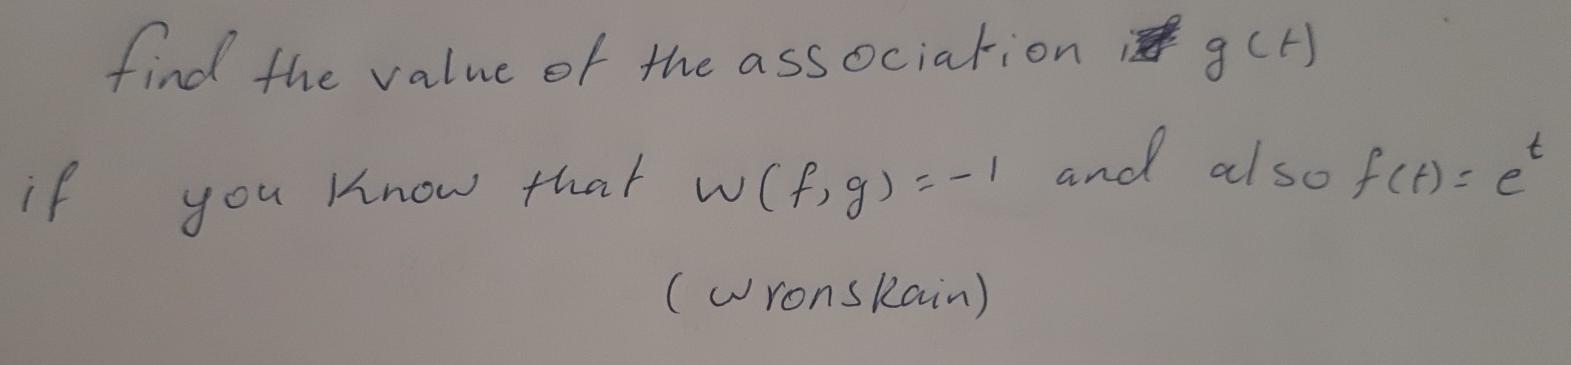 find the value of the association g(t)
if you know that w(f,g)=-1 and also f(t)=e^t
(wronskain)